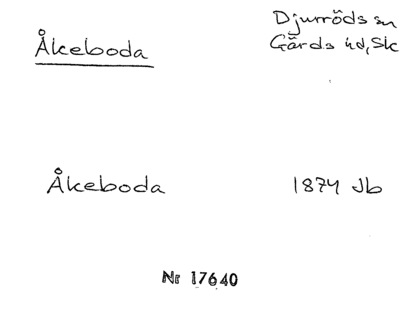 Åkeboda
Djurröds sn
Gärds hd, Sk
Åkeboda
1874 Jb
Nr 17640